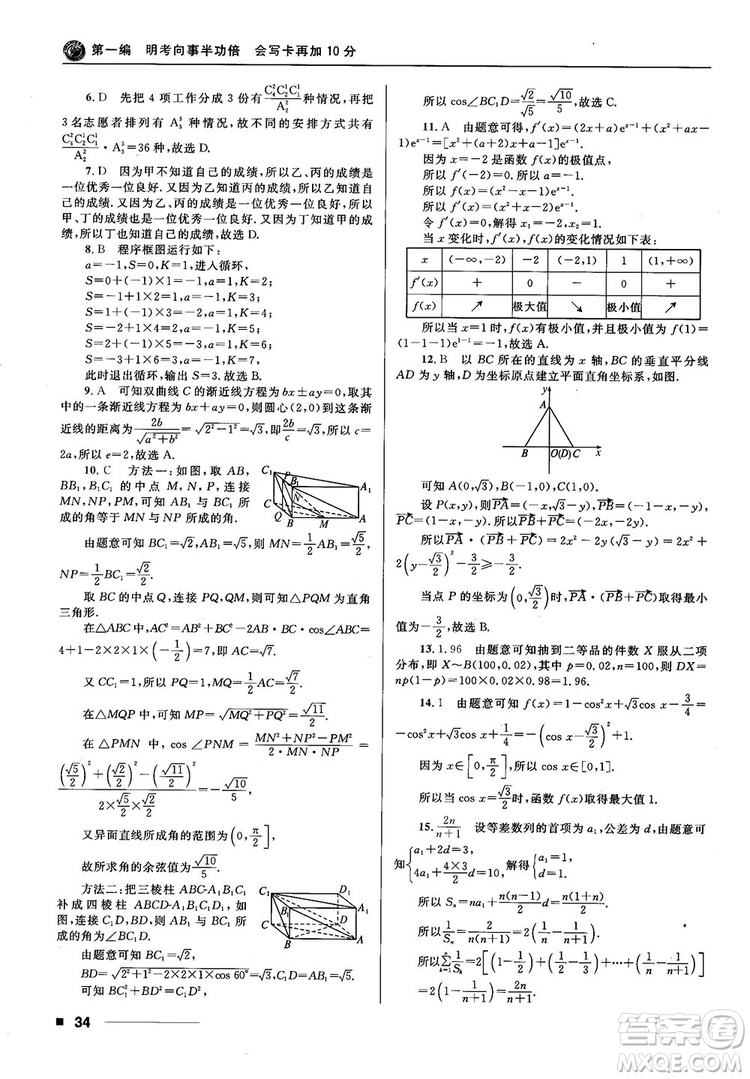 第一编 明考向事半功倍 会写卡再加 10 分
6. D 先把 4 项工作分成 3 份有 C₄²C₂¹C₁¹/A₂² 种情况,再把
3 名志愿者排列有 A₃³ 种情况,故不同的安排方式共有
C₄²C₂¹C₁¹/A₂² · A₃³=36 种,故选 D.
7. D 因为甲不知道自己的成绩,所以乙、丙的成绩是
一位优秀一位良好.又因为乙知道丙的成绩,所以乙知道自
己的成绩.又因为丁知道甲的成绩,所以
甲、丁的成绩也一位优秀一位良好.又因为丁知道甲的成
绩,所以丁也知道自己的成绩.故选 D.
8. B 程序框图运行如下:
a=-1,S=0,K=1,进入循环,
S=0+(-1)×1=-1,a=1,K=2;
S=-1+1×2=1,a=-1,K=3;
S=1+(-1)×3=-2,a=1,K=4;
S=-2+1×4=2,a=-1,K=5;
S=2+(-1)×5=-3,a=1,K=6;
S=-3+1×6=3,a=-1,K=7,
此时退出循环,输出 S=3.故选 B.
9. A 可知双曲线 C 的渐近线方程为 bx±ay=0,取其
中的一条渐近线方程为 bx+ay=0,则圆心(2,0)到这条渐
近线的距离为 2b/√(a²+b²)=√(2²-1²)=√3,即 2b/c=√3,所以 c=
2a,所以 e=2.故选 A.
10. C 方法一:如图,取 AB,
BB₁,B₁C₁ 的中点 M,N,P,连接
MN,NP,PM,则异面直线所
成的角等于 MN 与 NP 所成的角.
由题意可知 BC₁=√2,AB₁=√5,则 MN=1/2AB₁=√5/2,
NP=1/2BC₁=√2/2.
取 BC 的中点 Q,连接 PQ,QM,则可知△PQM 为直角
三角形.
在△ABC 中,AC²=AB²+BC²-2AB·BC·cos∠ABC=
4+1-2×2×1×(-1/2)=7,所以 AC=√7.
又 CC₁=1,所以 PQ=1,MQ=1/2AC=√7/2.
在△MQP 中,可知 MP=√(MQ²+PQ²)=√11/2.
在△PMN 中,cos∠PNM=(MN²+NP²-PM²)/(2·MN·NP)=
((√5/2)²+(√2/2)²-(√11/2)²)/(2×√5/2×√2/2)=-√10/5,
又异面直线所成角的范围为(0,π/2],
故所求角的余弦值为√10/5.
方法二:把三棱柱 ABC-A₁B₁C₁
补成四棱柱 ABCD-A₁B₁C₁D₁,如
图,连接 C₁D,BD,则 AB₁与 BC₁所
成的角为∠BC₁D.
由题意可知 BC₁=√2,
BD=√(2²+1²-2×2×1×cos 60°)=√3,C₁D=AB₁=√5.
可知 BC₁²+BD²=C₁D²,
所以 cos∠BC₁D=√2/√5=√10/5,故选 C.
11. A 由题意可得,f′(x)=(2x+a)eˣ⁻¹+
(x²+ax-1)eˣ⁻¹=[x²+(a+2)x+a-1]eˣ⁻¹.
因为 x=-2 是函数 f(x)的极值点,
所以 f′(-2)=0,所以 a=-1.
所以 f(x)=(x²-x-1)eˣ⁻¹.
所以 f′(x)=(x²+x-2)eˣ⁻¹.
令 f′(x)=0,解得 x₁=-2,x₂=1.
当 x 变化时,f′(x),f(x)的变化情况如下表:
x (-∞,-2) -2 (-2,1) 1 (1,+∞)
f′(x) + 0 - 0 +
f(x) ↗ 极大值 ↘ 极小值 ↗
所以当 x=1 时,f(x)有极小值,并且极小值为 f(1)=
(1-1-1)e¹⁻¹=-1.故选 A.
12. B 以 BC 所在的直线为 x 轴,BC 的垂直平分线
AD 为 y 轴,D 为坐标原点建立平面直角坐标系,如图.
可知 A(0,√3),B(-1,0),C(1,0).
设 P(x,y),则PA=(-x,√3-y),PB=(-1-x,-y),
PC=(1-x,-y).所以PB+PC=(-2x,-2y).
所以PA·(PB+PC)=2x²-2y(√3-y)=2x²+
2(y-√3/2)²-3/2≥-3/2.
当点 P 的坐标为(0,√3/2)时,PA·(PB+PC)取得最小
值为-3/2,故选 B.
13. 1.96 由题意可知抽到二等品的件数 X 服从二项
分布,即 X~B(100,0.02),其中 p=0.02,n=100,则 DX=
np(1-p)=100×0.02×0.98=1.96.
14. 1 由题意可知 f(x)=1-cos²x+√3cos x-3/4=
-cos²x+√3cos x+1/4=-(cos x-√3/2)²+1.
因为 x∈[0,π/2],所以 cos x∈[0,1].
所以当 cos x=√3/2时,函数 f(x)取得最大值 1.
15. 2n/(n+1) 设等差数列的首项为 a₁,公差为 d,由题意可
知{a₁+2d=3, 4a₁+(4×3/2)d=10,解得{a₁=1, d=1.
所以 Sₙ=na₁+n(n-1)/2 d=n(n+1)/2.
所以 1/Sₙ=2/(n(n+1))=2(1/n-1/(n+1)).
所以 ∑ₖ₌₁ⁿ 1/Sₖ=2[(1-1/2)+(1/2-1/3)+…+(1/n-1/(n+1))]
=2(1-1/(n+1))=2n/(n+1).
34